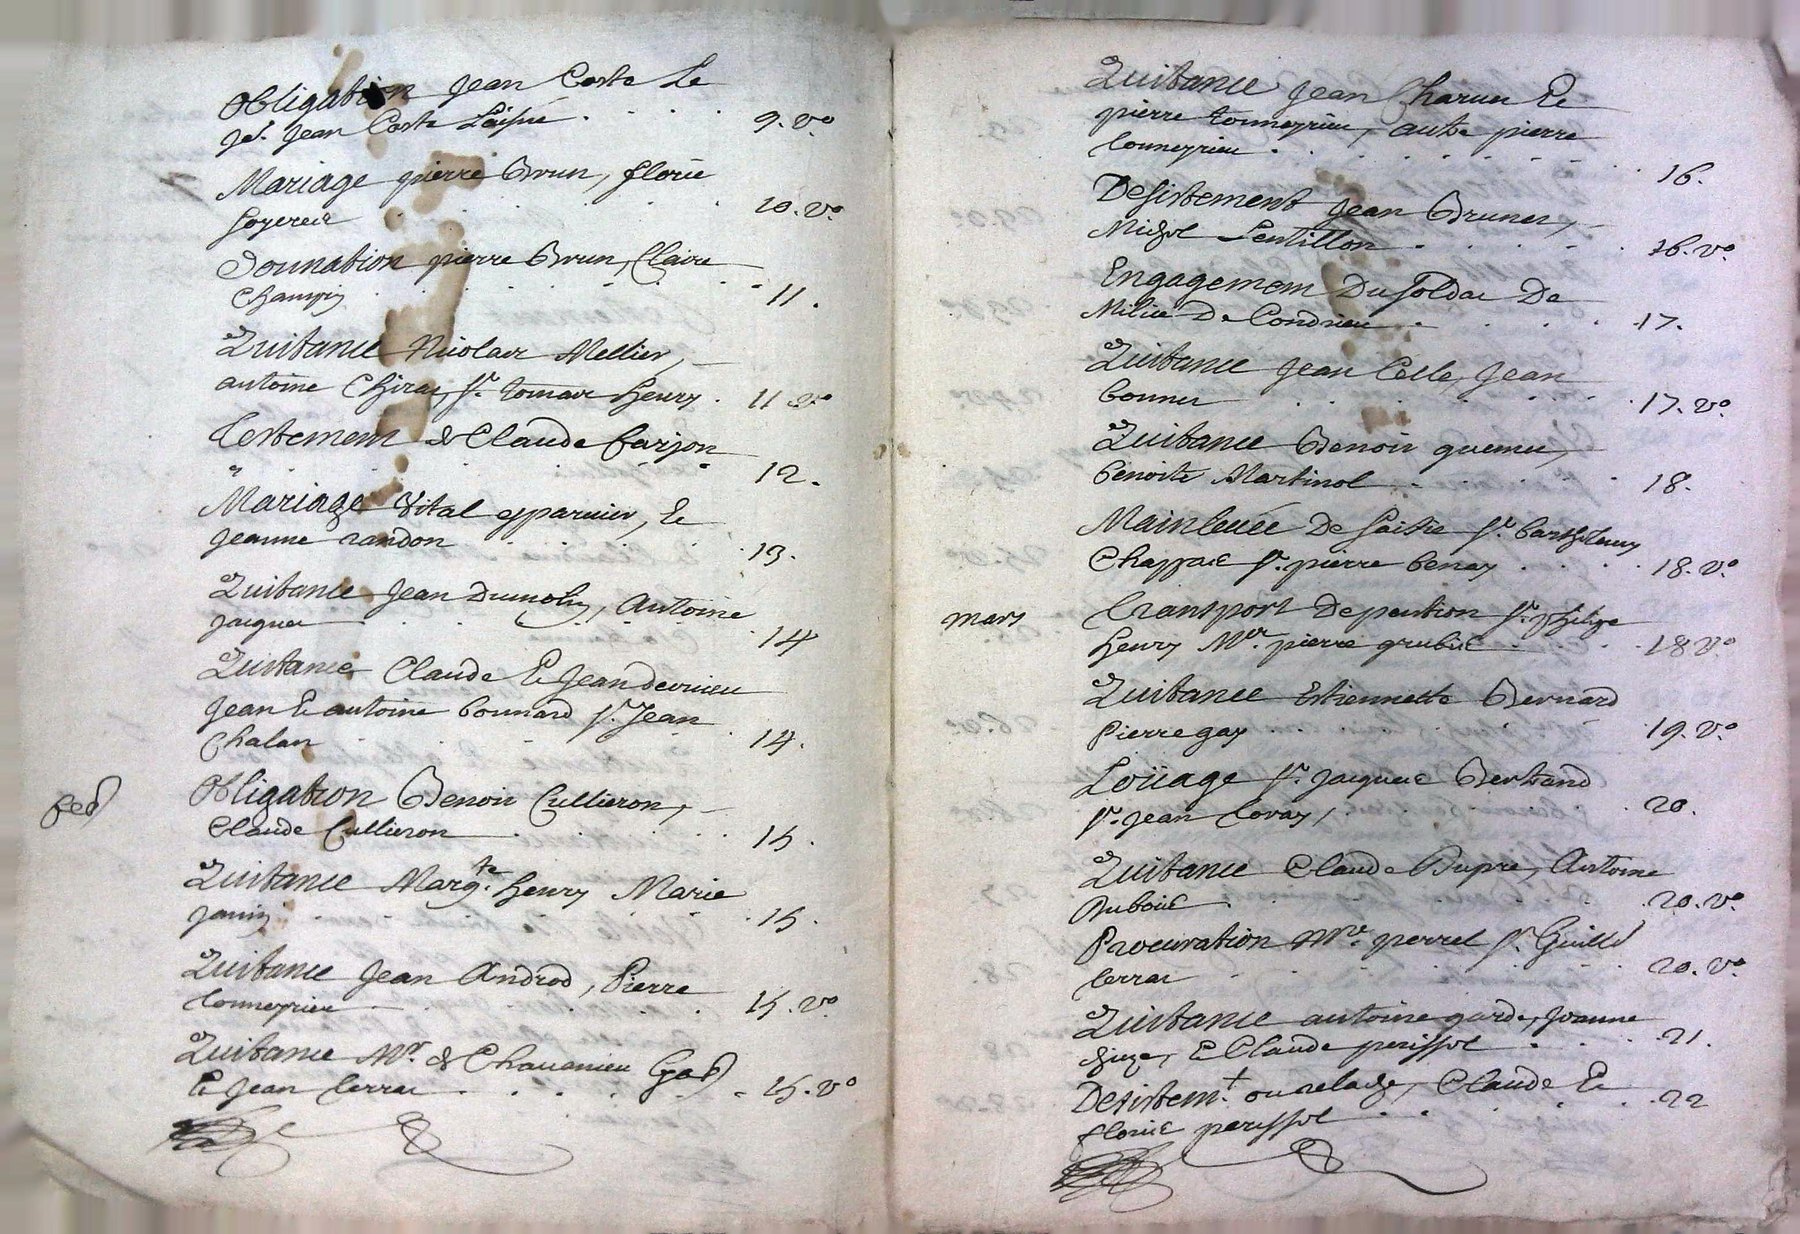 Obligation Jean Coste Le
Jeᵉ. Jean Coste Laisné . . . . 9. v.º
Mariage pierre Brun, florie
. . . . . 10. v.º
Donnation pierre Brun, Claire
Champin . . . . . . . 11.
Quitance Nicolas Mellier,
antoine Chirac, sʳ. tomas henry . 11 vº
Testement de Claude farjon
" . . . . 12.
Mariage vital epparvier, Et
Jeanne randon . . . . 13.
Quitance Jean Dumolin, Antoine
Jacques . . . . . 14
Quitance Claude Et Jean
Jean Et antoine bonnard sʳ. Jean
Chalan . . . . . 14.
feb
Obligation Benoit Cullieron,
Claude Cullieron . . . . 15.
Quitance Margᵗᵉ. henry Marie
Janin . . . . . 15.
Quitance Jean Androd, Pierre
tonneyrieu . . . . . 15. vº.
Quitance Mʳ. de Chavanieu
Et Jean terrac . . . . . 15. vº
Quitance Jean Et
pierre tonneyrieu, autre pierre
tonneyrieu . . . . . . . 16.
Desistement Jean Brunet,
Michel Lentillon . . . . 16. v.º
Engagement Du soldat De
Milice De Condrieu . . . . 17.
Quitance Jean Celle, Jean
bonnet . . . . . . 17. v.º
Quitance Benoit
benoite Martinol . . . . 18.
Mainlevée De saisie sʳ. barthelemy
Chappas sʳ. pierre benay . . . . 18. v.º
mars
Transport De pention sʳ. phelipe
henry Mʳ. pierre grubis . . . . 18 v.º
Quitance Estiennette Bernard
Pierre gay . . . . . 19. v.º
Loüage sʳ. Jacques Bertrand
sʳ. Jean . . . . . 20.
Quitance Claude Dupre, Antoine
Dubois . . . . . 20. v.º
Procuration Mʳ. perret sʳ. Guille
terrac . . . . . 20. v.º
Quitance antoine garde, Jeanne
Et Claude perissol . . . . 21.
Desistemᵗ. ou relache, Claude Et
florie perissol . . . . . 22